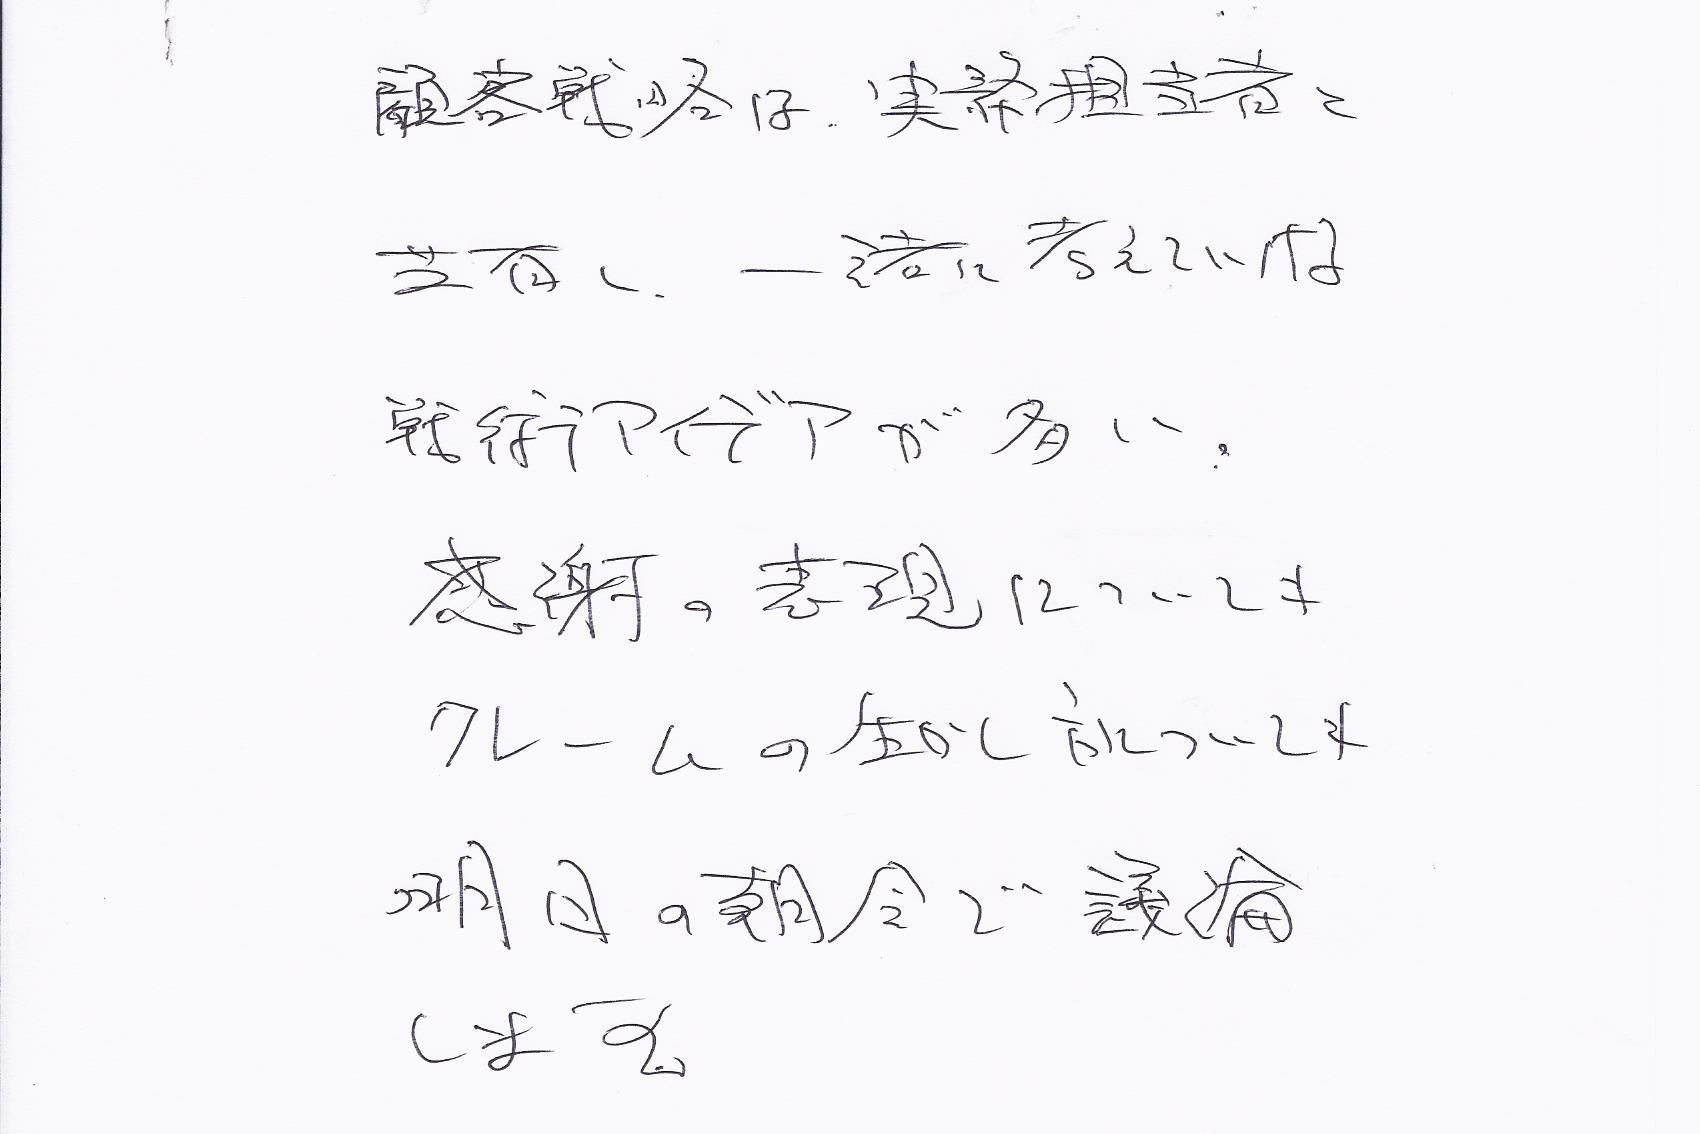 顧客戦略は、実務担当者と
共有し、一緒に考えていけば
戦術アイデアが多い。
感謝の表現についても
クレームの生かし方についても
明日の朝会で議論
します